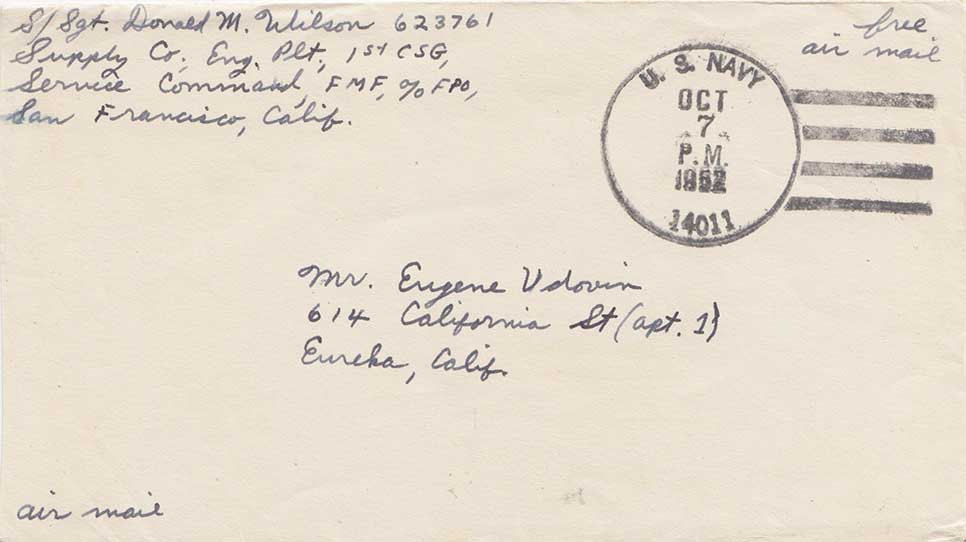 S/Sgt. Donald M. Wilson 623761
Supply Co. Eng. Plt., 1ST CSG,
Service Command, FMF, % FPO,
San Francisco, Calif.
free
air mail
U. S. NAVY
OCT
7
P.M.
1952
14011
Mr. Eugene Vdovin
614 California St (apt. 1)
Eureka, Calif.
air mail